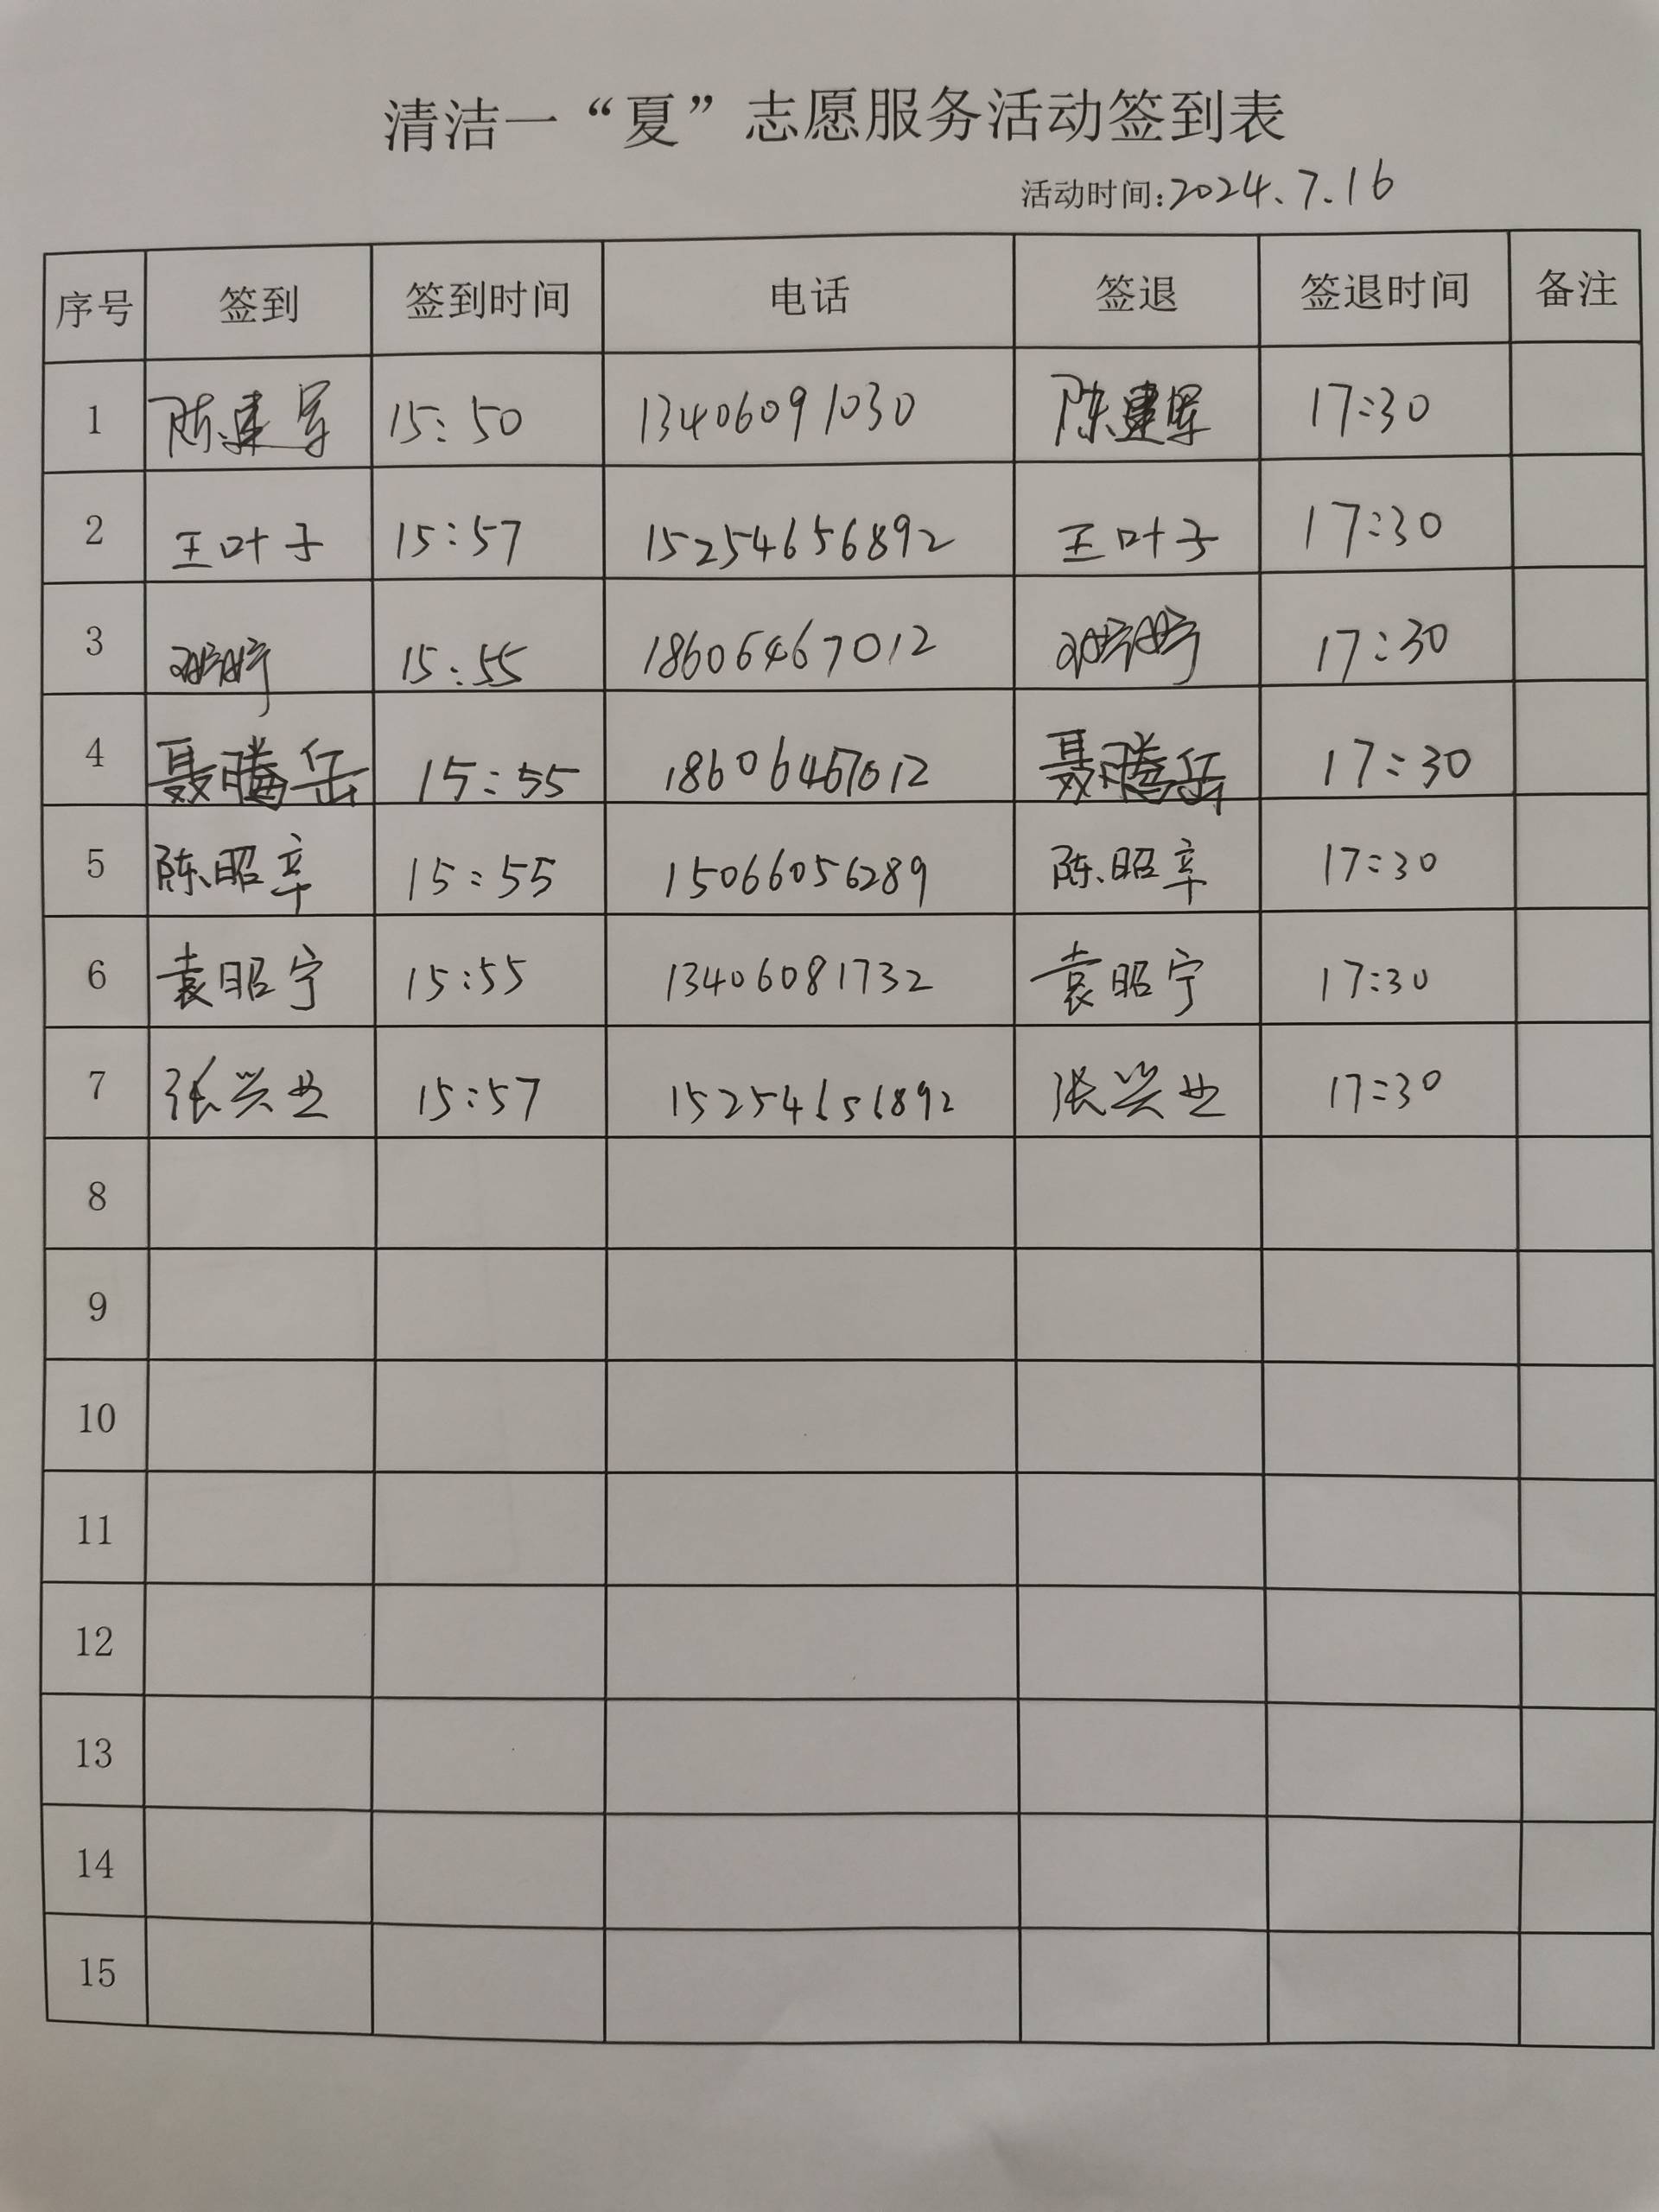 清洁一“夏”志愿服务活动签到表
活动时间:2024.7.16
序号 签到 签到时间 电话 签退 签退时间 备注
1 陈建军 15:50 13406091030 陈建军 17:30
2 王叶子 15:57 15254656892 王叶子 17:30
3 15:55 18606467012 17:30
4 聂腾岳 15:55 18606467012 聂腾岳 17:30
5 陈昭辛 15:55 15066056289 陈昭辛 17:30
6 袁昭宁 15:55 13406081732 袁昭宁 17:30
7 张兴业 15:57 15254656892 张兴业 17:30
8
9
10
11
12
13
14
15